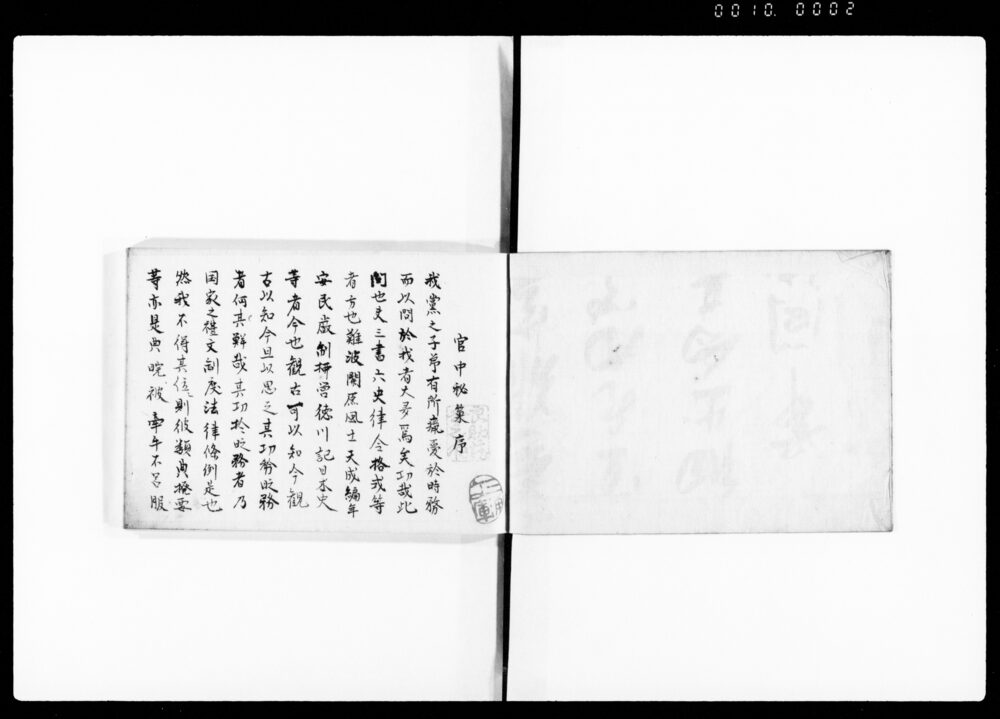 0010. 0002
官中秘策序
我黨之子弟有所癡憂於時務
而以問於我者大多爲矣功哉此
問也夫三書六史律令格式等
者方也難波開原風土天成編年
安民嚴制拼曽德川記日本史
等者今也觀古可以知今觀
古以知今且以思之其功於時務
者何其鮮哉其功於時務者乃
国家之禮文制度法律條例是也
然我不得其位則彼類典援要
等亦是典
不
服